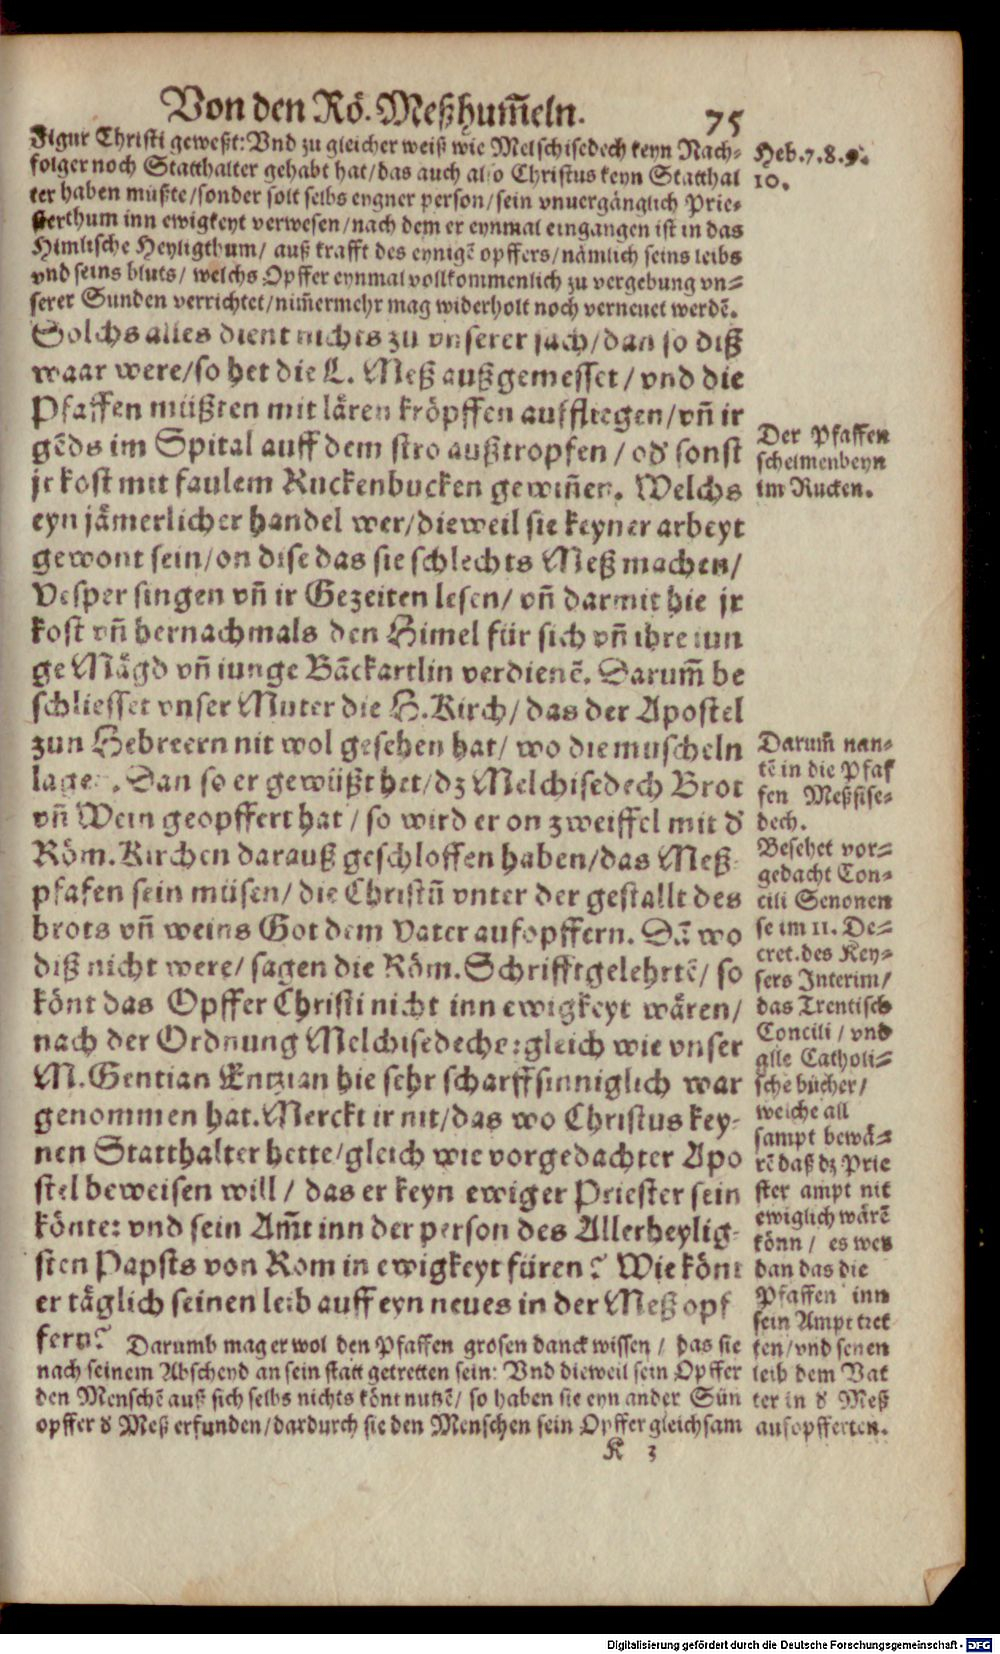 Von den Rö. Meßhum̃eln. 75
Figur Christi geweßt: Vnd zu gleicher weiß wie Melschisedech keyn Nach⸗
folger noch Statthalter gehabt hat/das auch also Christus keyn Statthal
ter haben müßte/sonder solt selbs eygner person/sein vnuergänglich Prie⸗
sterthum inn ewigkeyt verwesen/nach dem er eynmal eingangen ist in das
Himlische Heyligthum/ auß krafft des eynigē opffers/nämlich seins leibs
vnd seins bluts/ welchs Opffer eynmal vollkommenlich zu vergebung vn⸗
serer Sunden verrichtet/nim̃ermehr mag widerholt noch verneuet werdē.
Heb.7.8.9.
10.
Solchs alles dient nichts zu vnserer sach/dan so diß
waar were/so het die L. Meß außgemesset/vnd die
Pfaffen müßten mit lären kröpffen auffliegen/vñ ir
gēds im Spital auff dem stro außtropfen/od' sonst
jr kost mit faulem Ruckenbucken gewiñen. Welchs
eyn jämerlicher handel wer/dieweil sie keyner arbeyt
gewont sein/on dise das sie schlechts Meß machen/
Vesper singen vñ ir Gezeiten lesen/ vñ darmit hie jr
kost vñ hernachmals den Himel für sich vñ ihre iun
ge Mägd vñ iunge Bāckartlin verdienē. Darum̃ be
schliesset vnser Muter die H.Kirch/das der Apostel
zun Hebreern nit wol gesehen hat/ wo die muscheln
lagen. Dan so er gewüßt het/dz Melchisedech Brot
vñ Wein geopffert hat/so wird er on zweiffel mit d'
Röm.Kirchen darauß geschlossen haben/das Meß⸗
pfafen sein müsen/die Christū vnter der gestallt des
brots vñ weins Got dem Vater aufopffern. Dā wo
diß nicht were/ sagen die Röm.Schrifftgelehrtē/ so
könt das Opffer Christi nicht inn ewigkeyt wären/
nach der Ordnung Melchisedechs: gleich wie vnser
M.Gentian Entzian hie sehr scharffsinniglich war
genommen hat. Merckt ir nit/das wo Christus key⸗
nen Statthalter hette/gleich wie vorgedachter Apo
stel beweisen will/ das er keyn ewiger Priester sein
könte: vnd sein Am̃t inn der person des Allerheylig⸗
sten Papsts von Rom in ewigkeyt füren? Wie könt
er täglich seinen leib auff eyn neues in der Meß opf
fern? Darumb mag er wol den Pfaffen grosen danck wissen/ das sie
nach seinem Abscheyd an sein statt getretten sein: Vnd dieweil sein Opffer
den Menschē auß sich selbs nichts könt nutzē/ so haben sie eyn ander Sün
opffer d' Meß erfunden/dardurch sie den Menschen sein Opffer gleichsam
Der Pfaffen
schelmenbeyn
im Rucken.
Darum̃ nan⸗
tē in die Pfaf
fen Meßsise⸗
dech.
Besehet vor⸗
gedacht Con⸗
cili Senonen
se im 11. De⸗
cret. des Key⸗
sers Interim/
das Trentisch
Concili/ vnd
alle Catholi⸗
sche bücher/
welche all
sampt bewä⸗
rē daß dz Prie
ster ampt nit
ewiglich wärē
könn/ es wer
dan das die
Pfaffen inn
sein Ampt tret
ten/vnd senen
leib dem Vat
ter in d' Meß
aufopfferten.
K 3
Digitalisierung gefördert durch die Deutsche Forschungsgemeinschaft - DFG